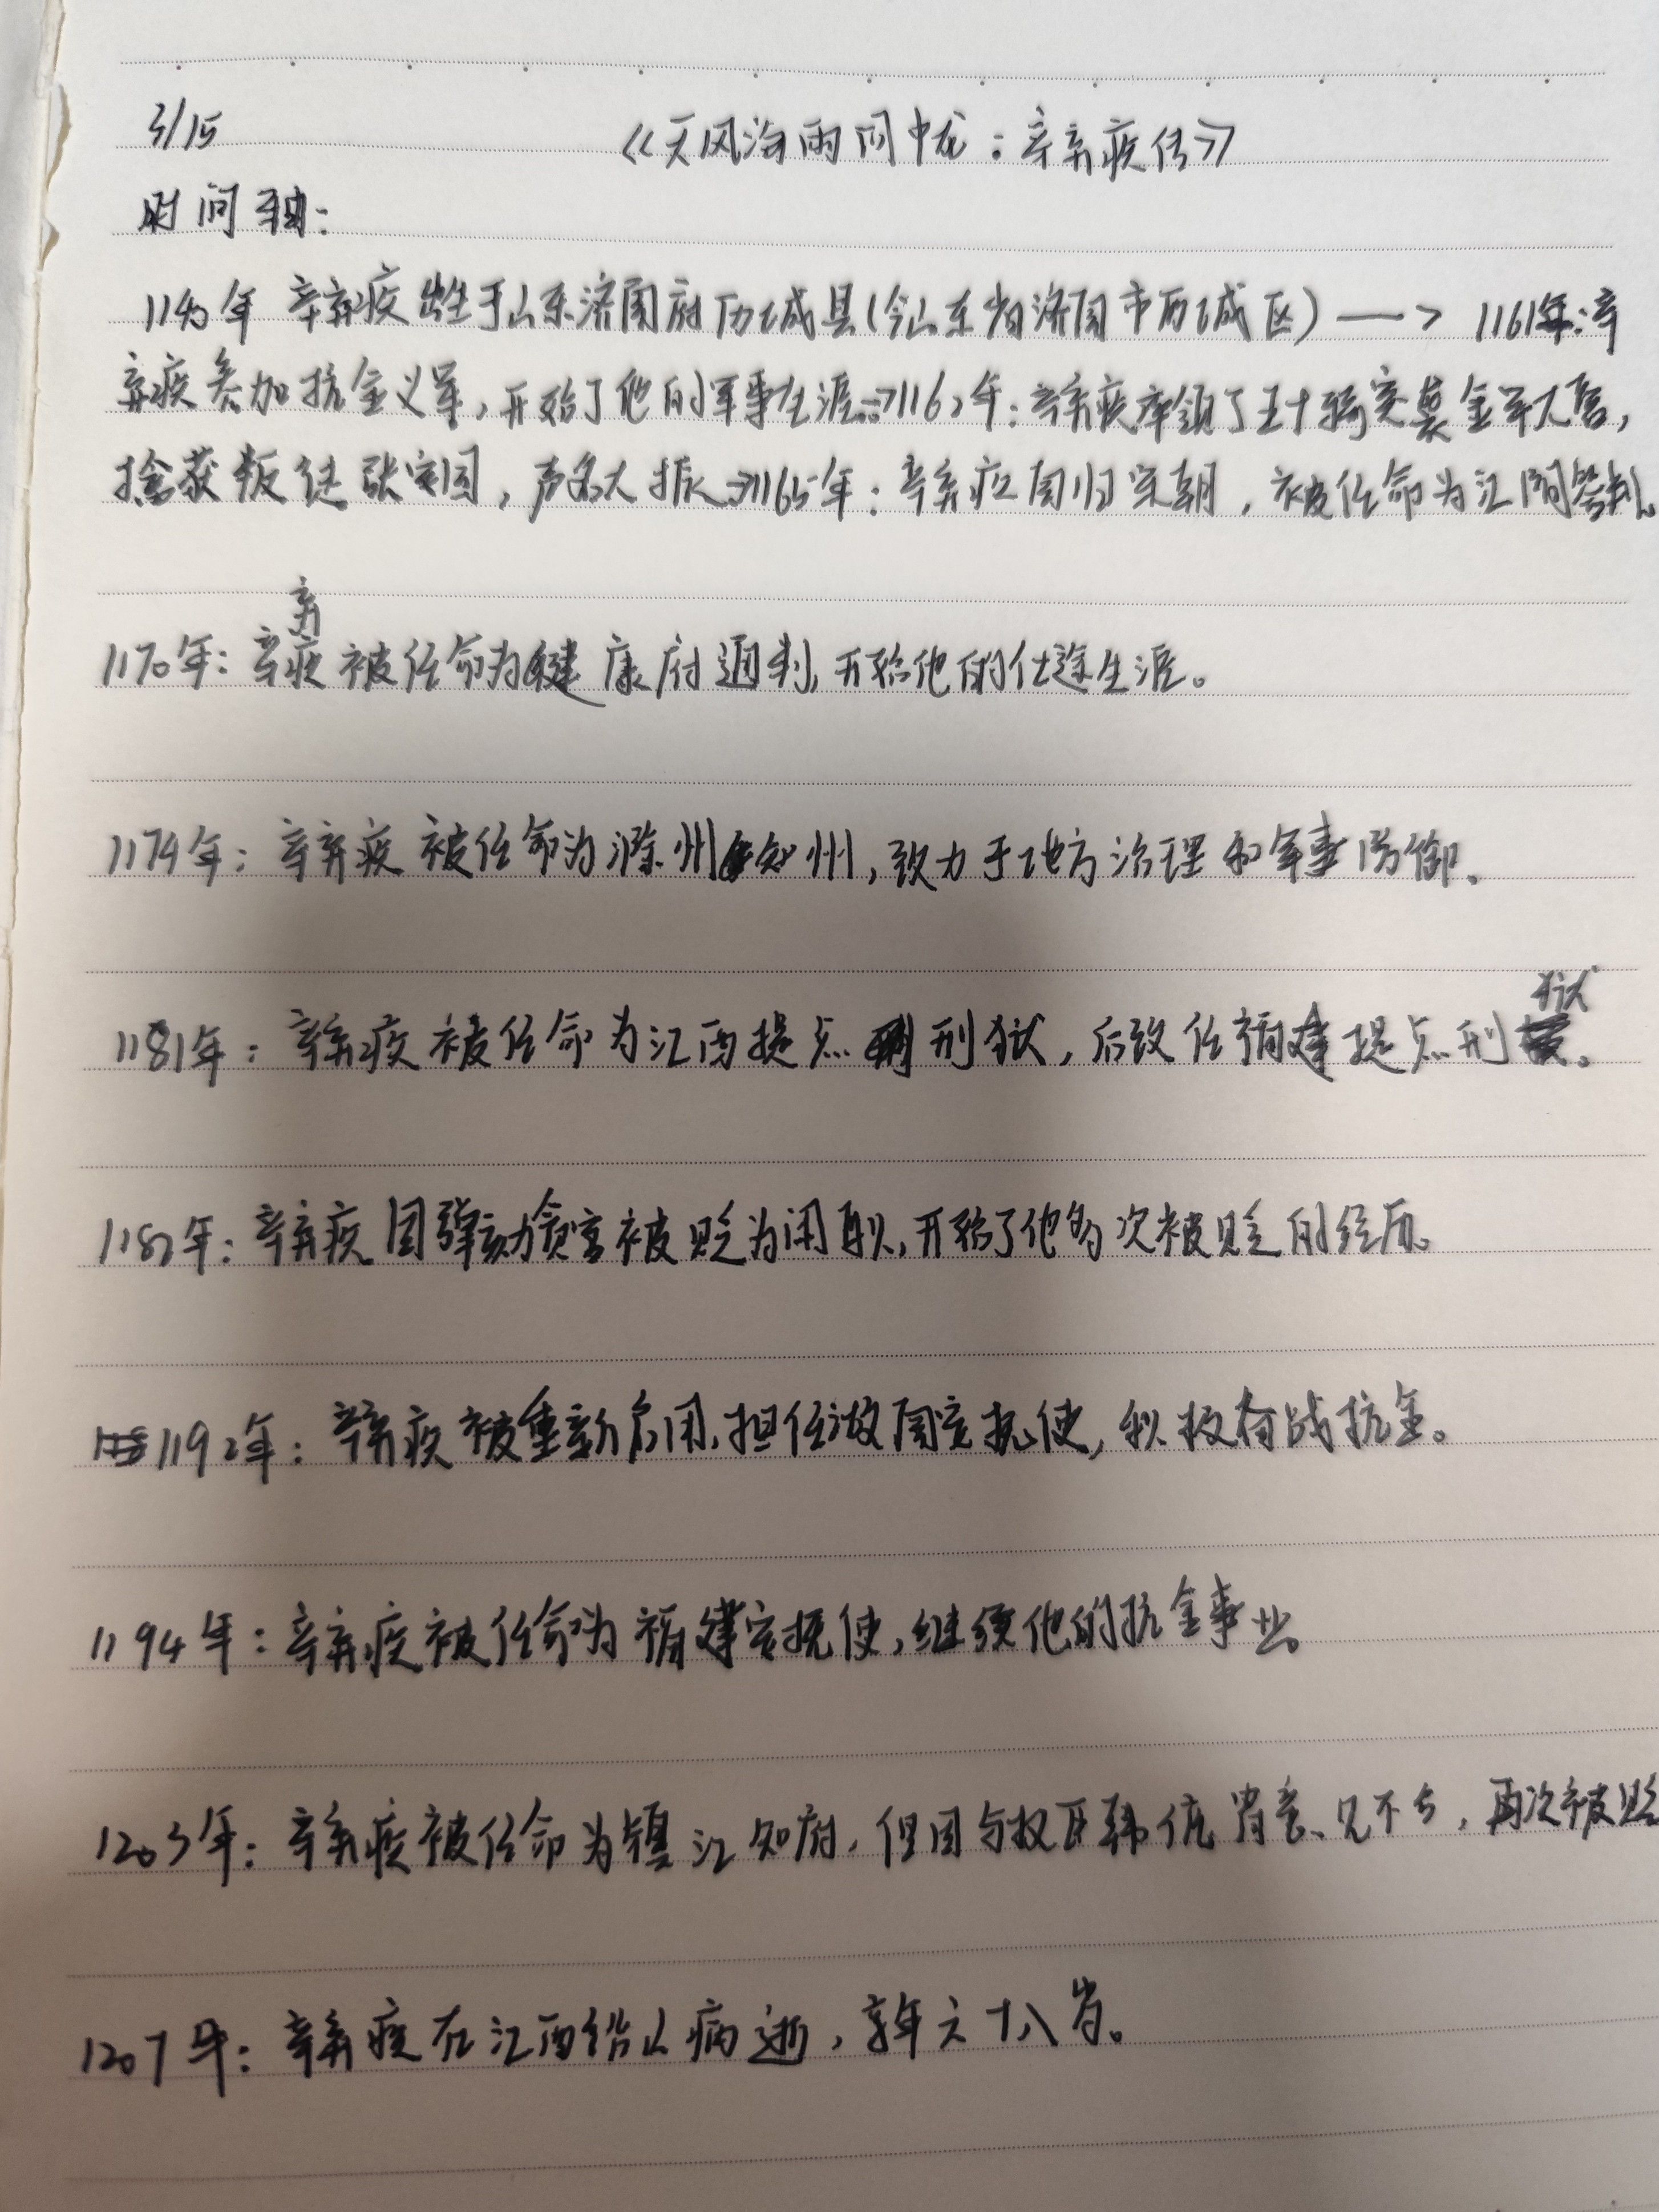 3/15 《天风海雨间中龙：辛弃疾传》
时间轴：
1140年 辛弃疾出生于山东济南府历城县(今山东省济南市历城区) —> 1161年：辛
弃疾参加抗金义军，开始了他的军事生涯。→1162年：辛弃疾率领了五十骑突袭金军大营，
擒获叛徒张安国，声名大振→1165年：辛弃疾南归宋朝，被任命为江阴签判。
1170年：辛弃疾被任命为建康府通判，开始他的仕途生涯。
1174年：辛弃疾被任命为滁州知州，致力于地方治理和军事防御。
1181年：辛弃疾被任命为江西提点刑狱，后改任福建提点刑狱。
1182年：辛弃疾因弹劾贪官被贬为闲职，开始了他多次被贬的经历。
1192年：辛弃疾被重新启用，担任湖南安抚使，积极备战抗金。
1194年：辛弃疾被任命为福建安抚使，继续他的抗金事业。
1203年：辛弃疾被任命为镇江知府，但因与权臣韩侂胄意见不合，再次被贬
1207年：辛弃疾在江西铅山病逝，享年六十八岁。